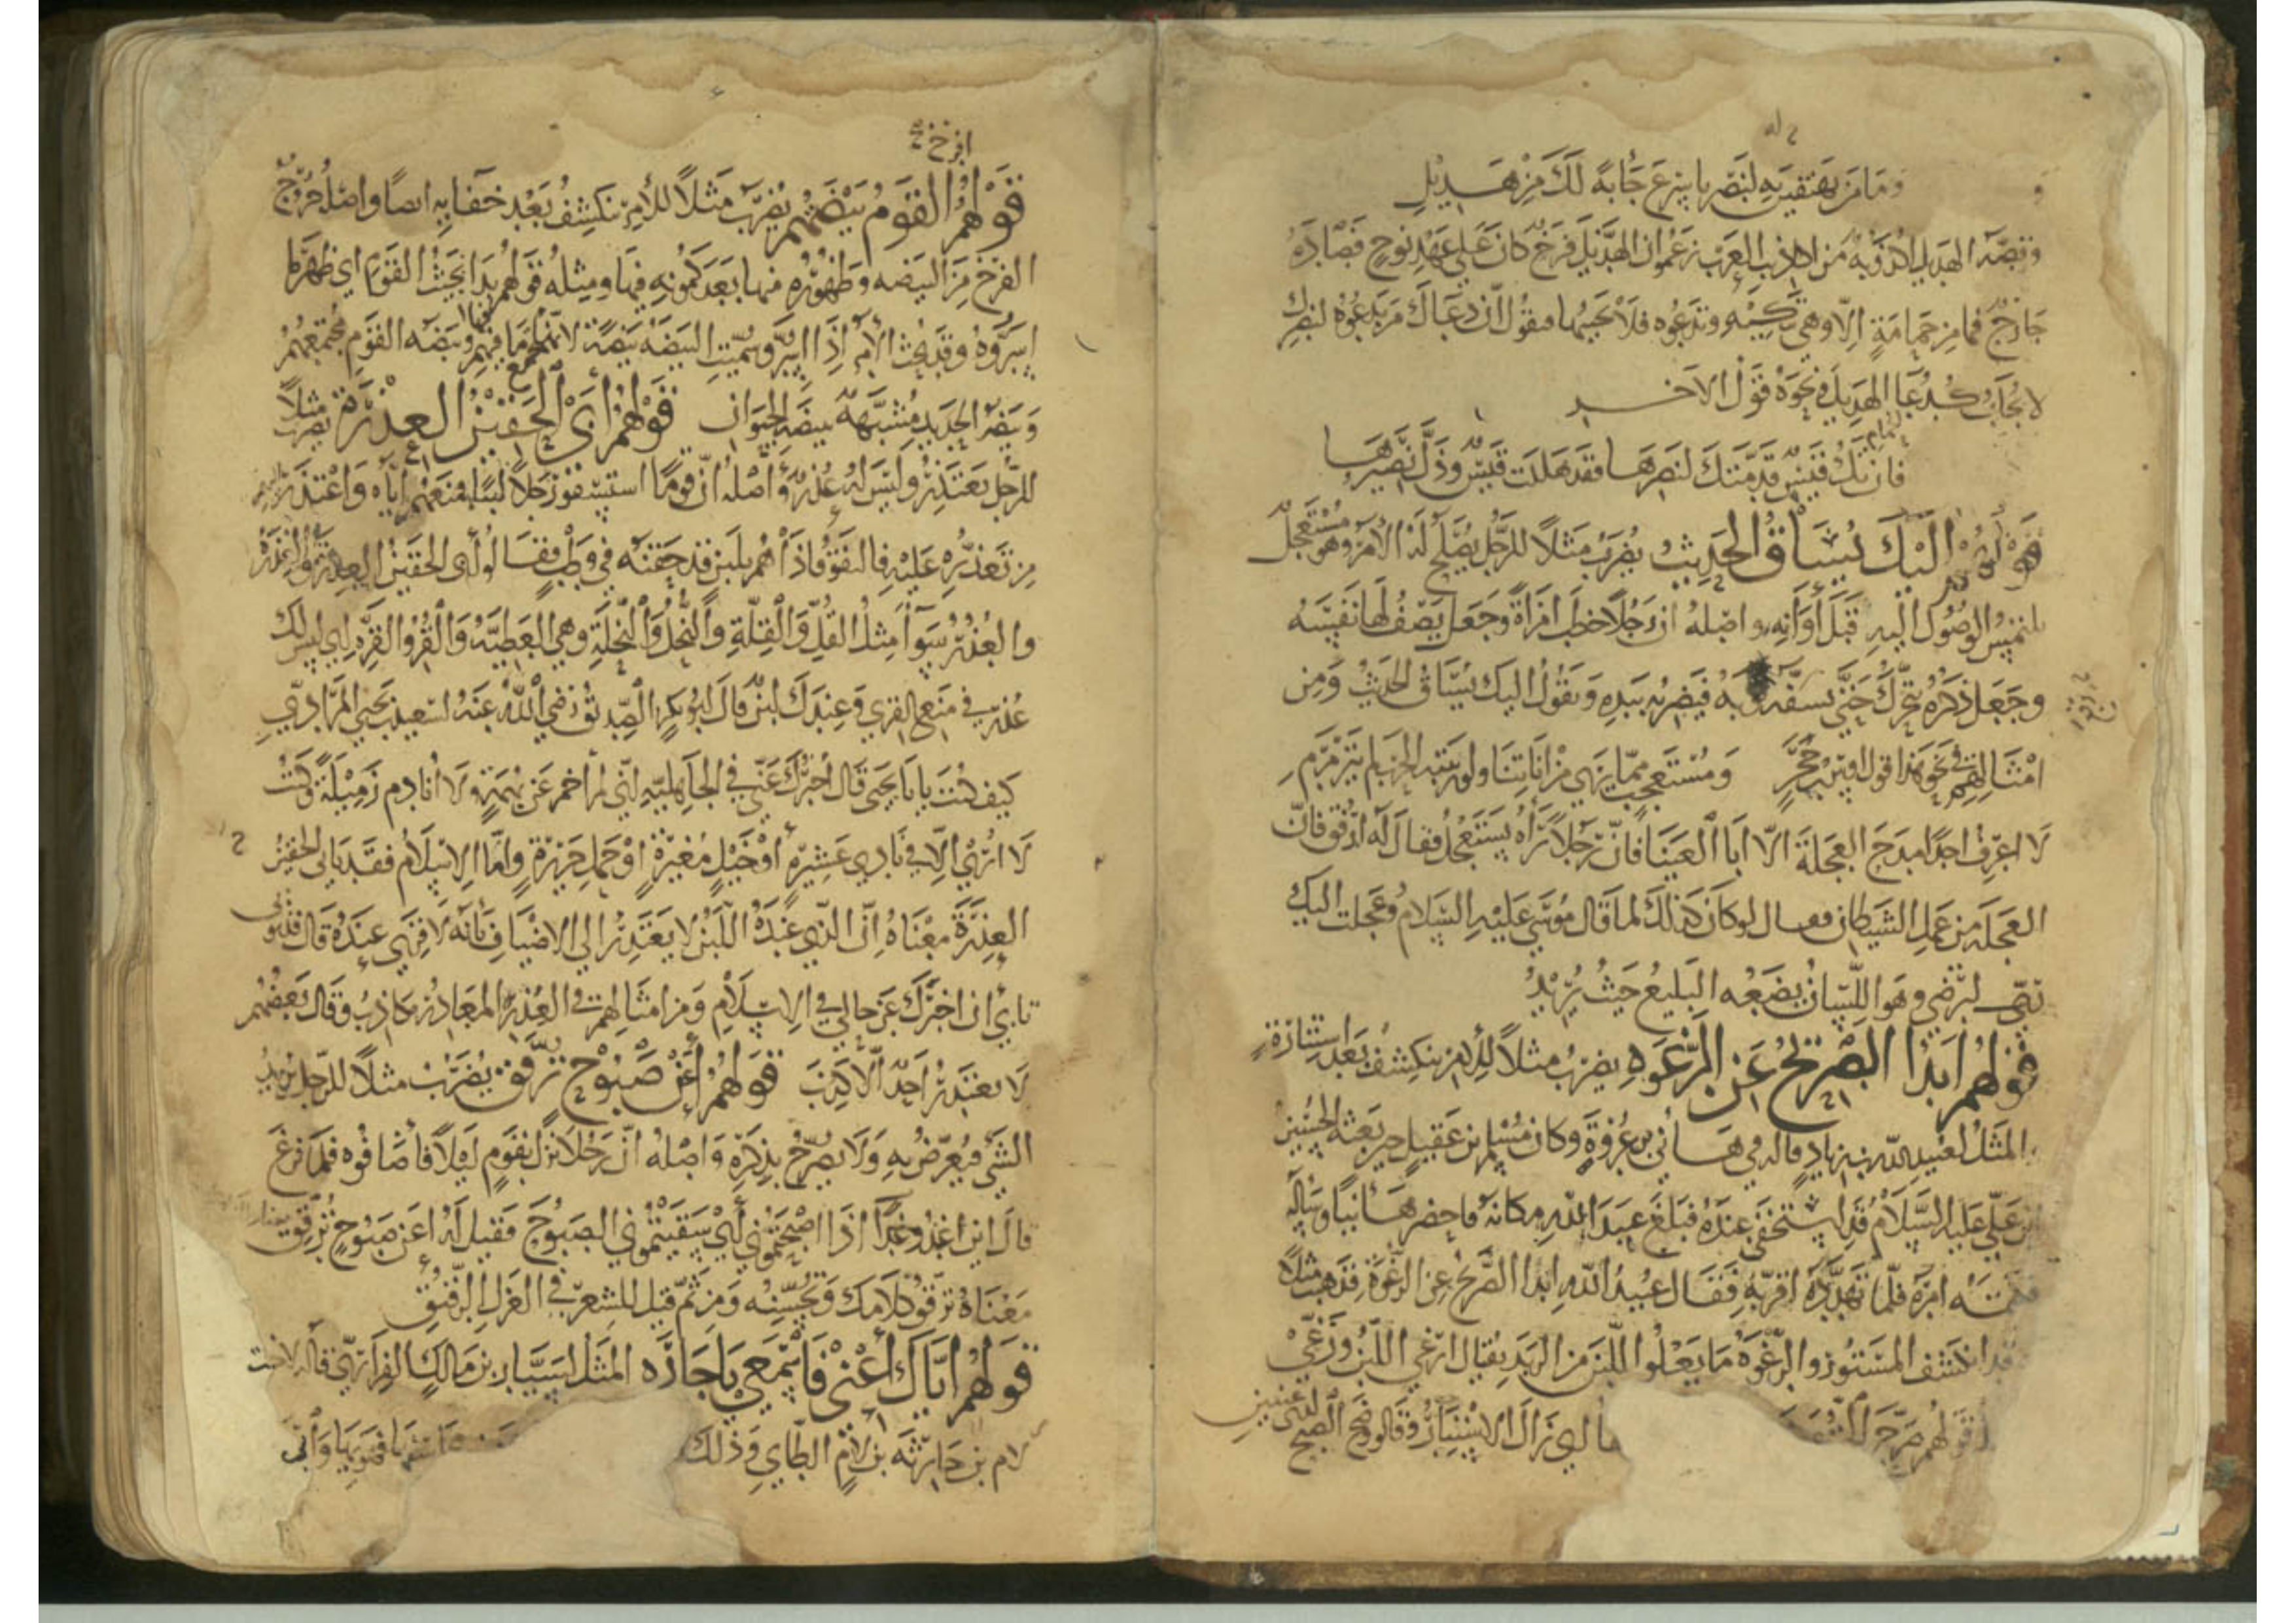 وما من تهتفين به لنصر باسرع جابة لك من هديل
وقصة الهديل اكذوبة من اكاذيب العرب زعموا ان الهديل فرخ كان على عهد نوح فصاده
جارح فما من حمامة الا وهي تبكيه وتدعوه فلا يجيبها فيقول ان دعاك من يدعوه لنصرك
لا يجاب كدعا الهديل ونحوه قول الاخر
فان تك قيس قدمتك لنصرها فقد هلكت قيس وذل نصيرها
قولهم اليك يساق الحديث يضرب مثلا للرجل يصلح له الامر وهو مستعجل
يلتمس الوصول اليه قبل اوانه واصله ان رجلا خطب امراة وجعل يصف لها نفسه
وجعل ذكره يتحرك حتى به فيضربه بيده ويقول اليك يساق الحديث ومن
امثالهم في نحو هذا قول اوس بن حجر ومستعجب مما يرى من اناتنا ولو زبنته الحرب لم يترمرم
لا اعرف احدا مدح العجلة الا ابا العيناء فان رجلا رآه يستعجل فقال له ارفق فان
العجلة من عمل الشيطان فقال لو كان كذلك لما قال موسى عليه السلام وعجلت اليك
رب لترضى وهو اللسان يضعه البليغ حيث يريد
قولهم ابدا الصريح عن الرغوة يضرب مثلا للامر ينكشف بعد استتاره
المثل لعبيد الله بن زياد قاله في هاني بن عروة وكان مسلم بن عقيل حين بعثه الحسين
بن علي عليه السلام قد استخفى عنده فبلغ عبيد الله مكانه فاحضر هانيا وساله
فكتمه امره فلما تهدده اقر به فقال عبيد الله ابدا الصريح عن الرغوة فذهب مثلا
قد انكشف المستور والرغوة ما يعلو اللبن من الزبد يقال ارغى اللبن ورغى
وقولهم صرح اي زال الاستتار وقالوا وضح الصبح لذي عينين
افرخ
قولهم القوم بيضتهم يضرب مثلا للامر ينكشف بعد خفايه ايضا واصله خروج
الفرخ من البيضه وظهوره منها بعد كمونه فيها ومثله قولهم بدا نجيث القوم اي ظهر ما
اسروه وقد نجث الامر اذا وسميت البيضه بيضة لانها تجمع ما فيها وبيضه القوم مجتمعهم
وبيض الحديد مشبهة ببيض الحيوان قولهم ابى الحقين العذرة يضرب مثلا
للرجل يعتذر وليس له عذر واصله ان قوما استسقوا رجلا لبنا فمنعهم اياه واعتذر
من تعذره عليه فالتفتوا فاذا هم بلبن قد حقنه في وطب فقالوا ابى الحقين العذرة والعذرة
والعذر سوا مثل القل والقلة والنحل والنحلة وهي العطية والقر والقرة اي ليس لك
عذر في منعهم القرى وعندك لبن قال ابو بكر الصديق رضي الله عنه لسعيد بن يحيى المرادي
كيف كنت يابا يحيى قال اخبرك عني في الجاهلية اني لم اخم عن بهمة ولا انادم زميلة وكنت
لا ارى الا في نادي عشيرة او خيل مغيرة او حمل جريرة واما الاسلام فقد يابى الحقين
العذرة معناه ان الذي عنده اللبن لا يعتذر الى الاضياف بانه لا قرى عنده قال فقلبي
تابى ان اخبرك عن حالي في الاسلام ومن امثالهم في العذر المعاذر مكاذب وقال بعضهم
لا يعتذر احد الا كذب قولهم اعن صبوح ترقق يضرب مثلا للرجل يريد
الشي فيعرض به ولا يصرح بذكره واصله ان رجلا نزل بقوم ليلا فاضافوه فلما فرغ
قال اين اغدو غدا اذا اصبحتموني اي سقيتموني الصبوح فقيل له اعن صبوح ترقق
معناه ترقق كلامك وتحسنه ومن ثم قيل للشعر في الغزل الرقيق
قولهم اياك اعني فاسمعي يا جاره المثل لسيار بن مالك الفزاري قاله لاخت
لام بن حارثه بن لام الطاي وذلك